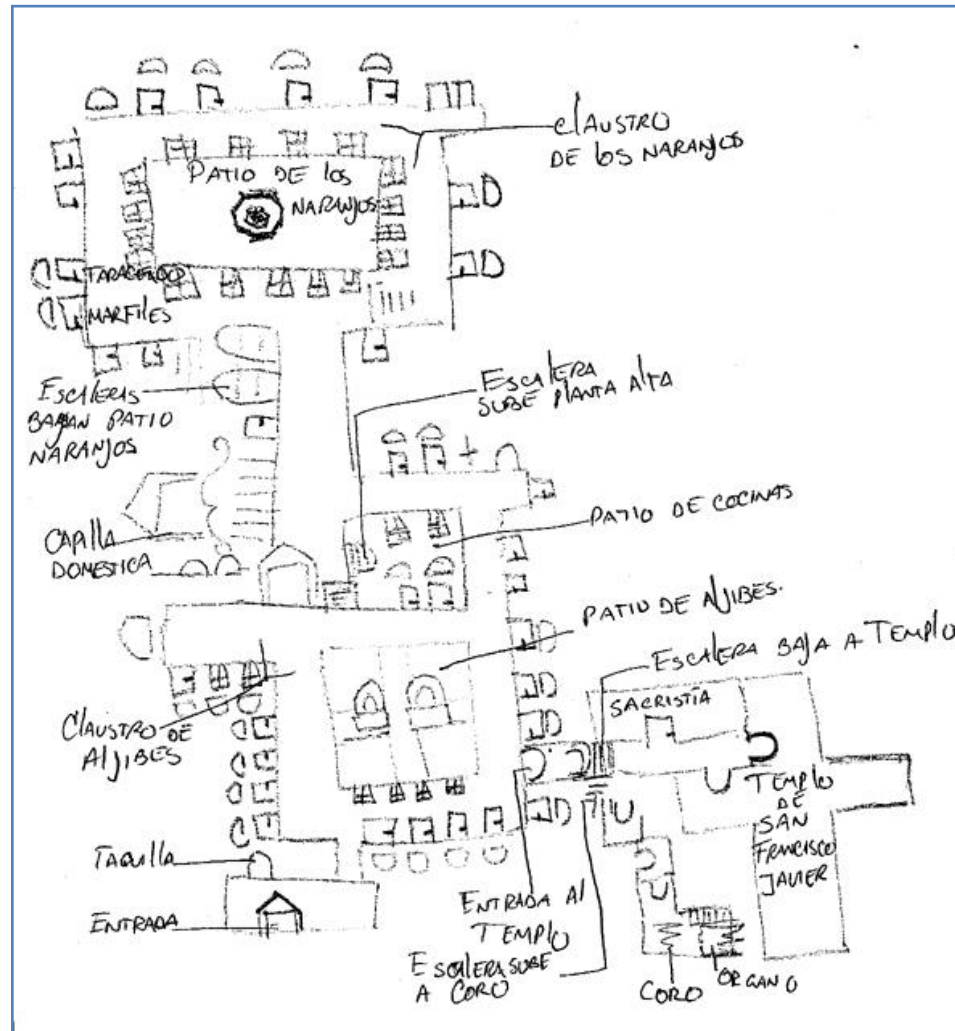 CLAUSTRO
DE LOS NARANJOS
PATIO DE LOS
NARANJOS
MARFILES
ESCALERAS
BAJAN PATIO
NARANJOS
ESCALERA
SUBE PLANTA ALTA
CAPILLA
DOMESTICA
PATIO DE COCINAS
PATIO DE ALJIBES.
ESCALERA BAJA A TEMPLO
SACRISTÍA
CLAUSTRO DE
ALJIBES
TEMPLO
DE
SAN
FRANCISCO
JAVIER
TAQUILLA
ENTRADA
ENTRADA AL
TEMPLO
ESCALERA SUBE
A CORO
CORO
ORGANO